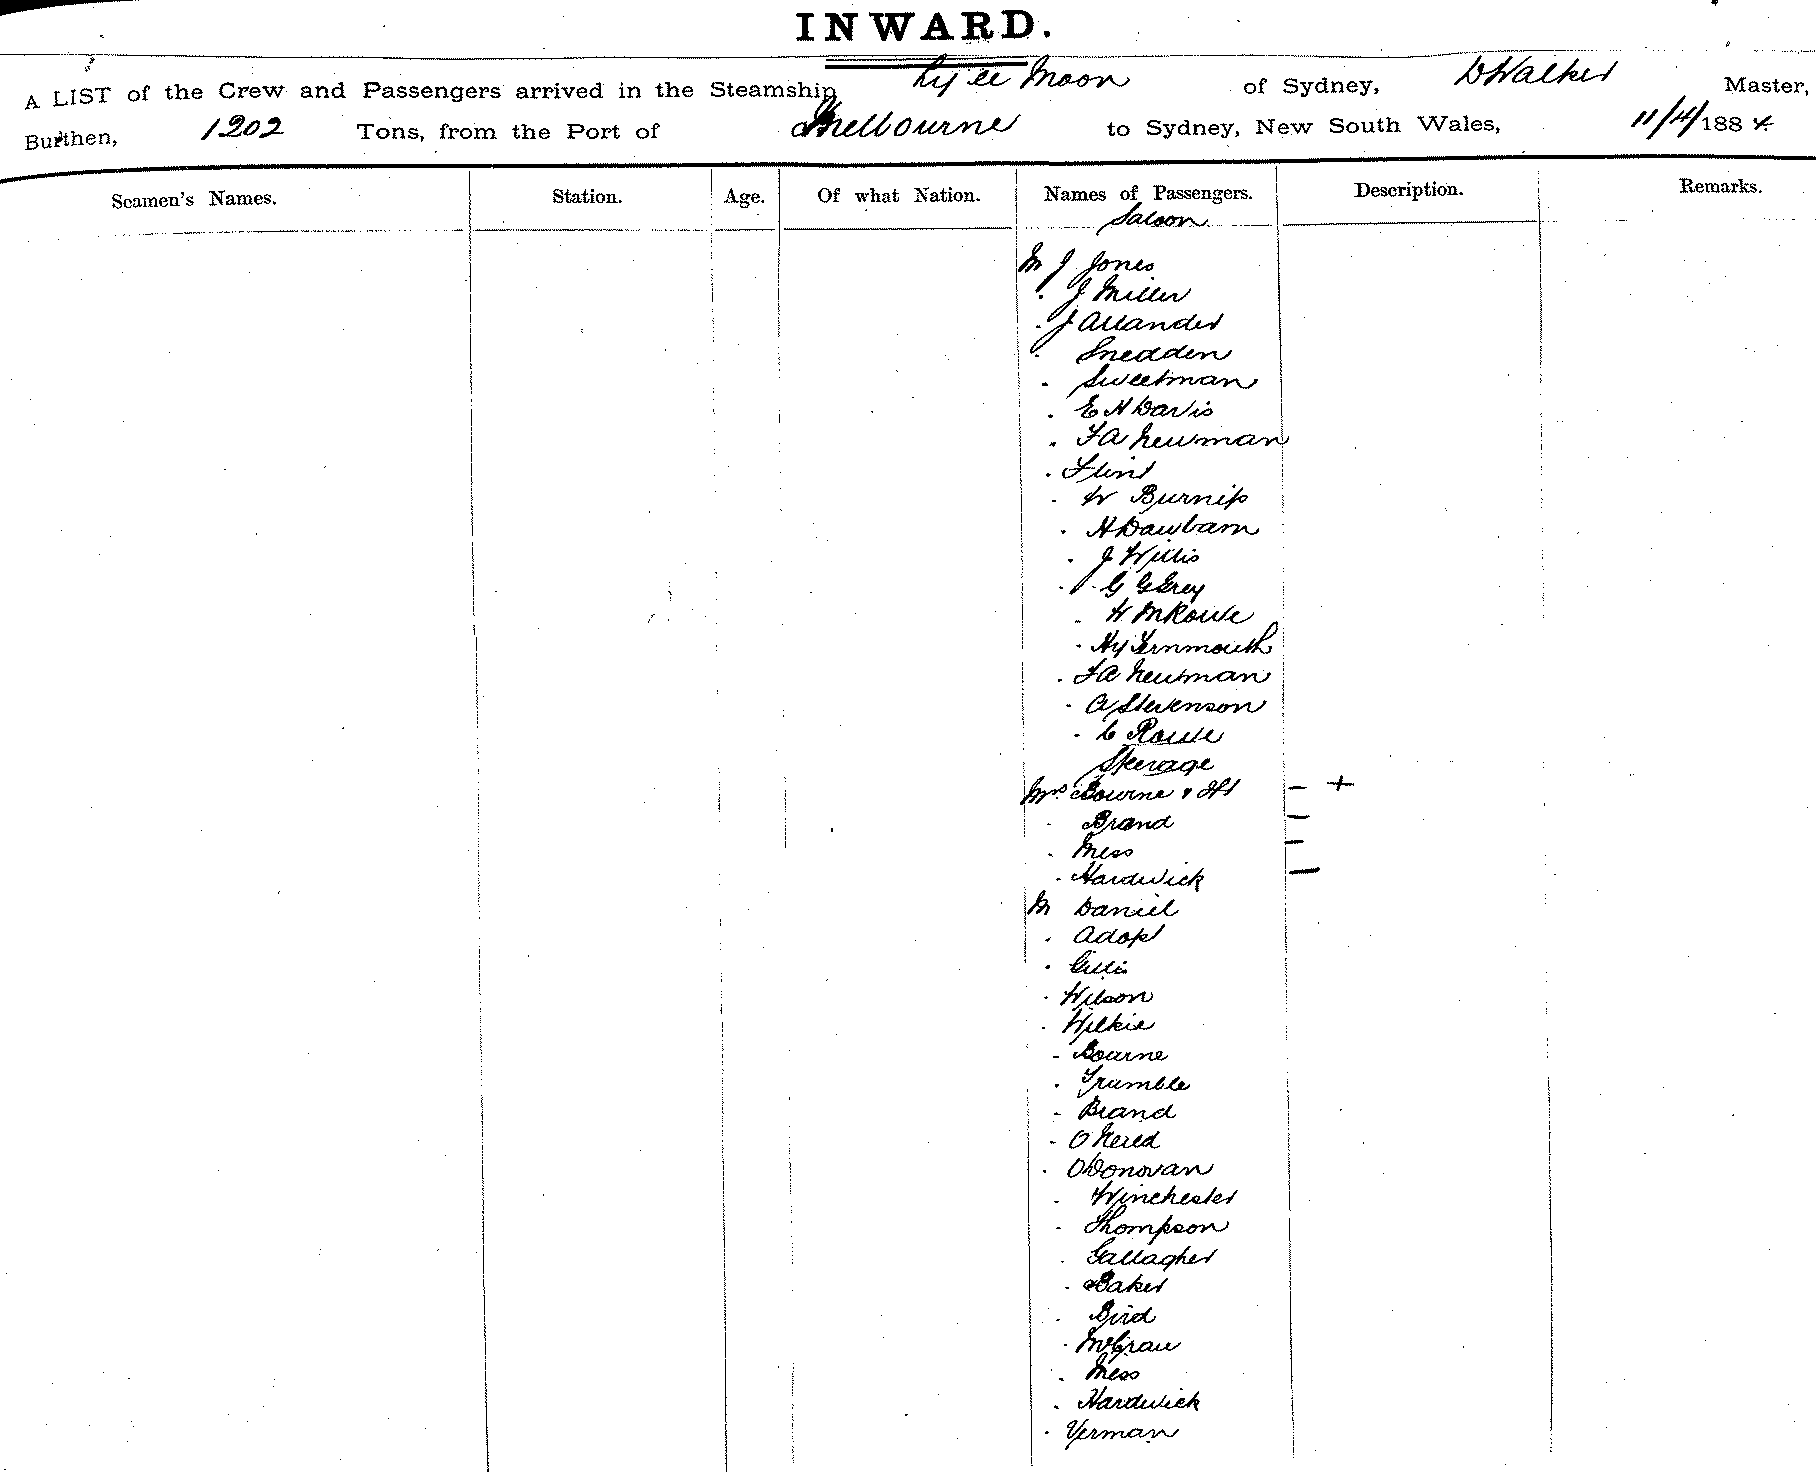 INWARD.
A LIST of the Crew and Passengers arrived in the Steamship Ly ee Moon of Sydney, D Walker Master,
Burthen, 1202 Tons, from the Port of Melbourne to Sydney, New South Wales, 11/4/1884.
Seamen's Names. Station. Age. Of what Nation. Names of Passengers. Description. Remarks.
Saloon
Mr J Jones
. J Miller
. J Allander
. Snedden
. Sweetman
. E H Davis
. F A Newman
. Flint
. W Burnip
. H Dawbarn
. J Willis
. G G Grey
. W M Rowe
. Hy Yernmouth
. F A Newman
. A Stevenson
. C Rowe
Steerage
Mrs Bourne & - +
. Brand -
. Mess -
. Hardwick -
Mr Daniel
. Adopt
. Gillis
. Wilson
. Wilkie
- Bourne
. Trumble
- Brand
- O
. O'Donovan
. Winchester
. Thompson
. Gallagher
. Baker
. Bird
. McGrau
. Mess
. Hardwick
. Yerman